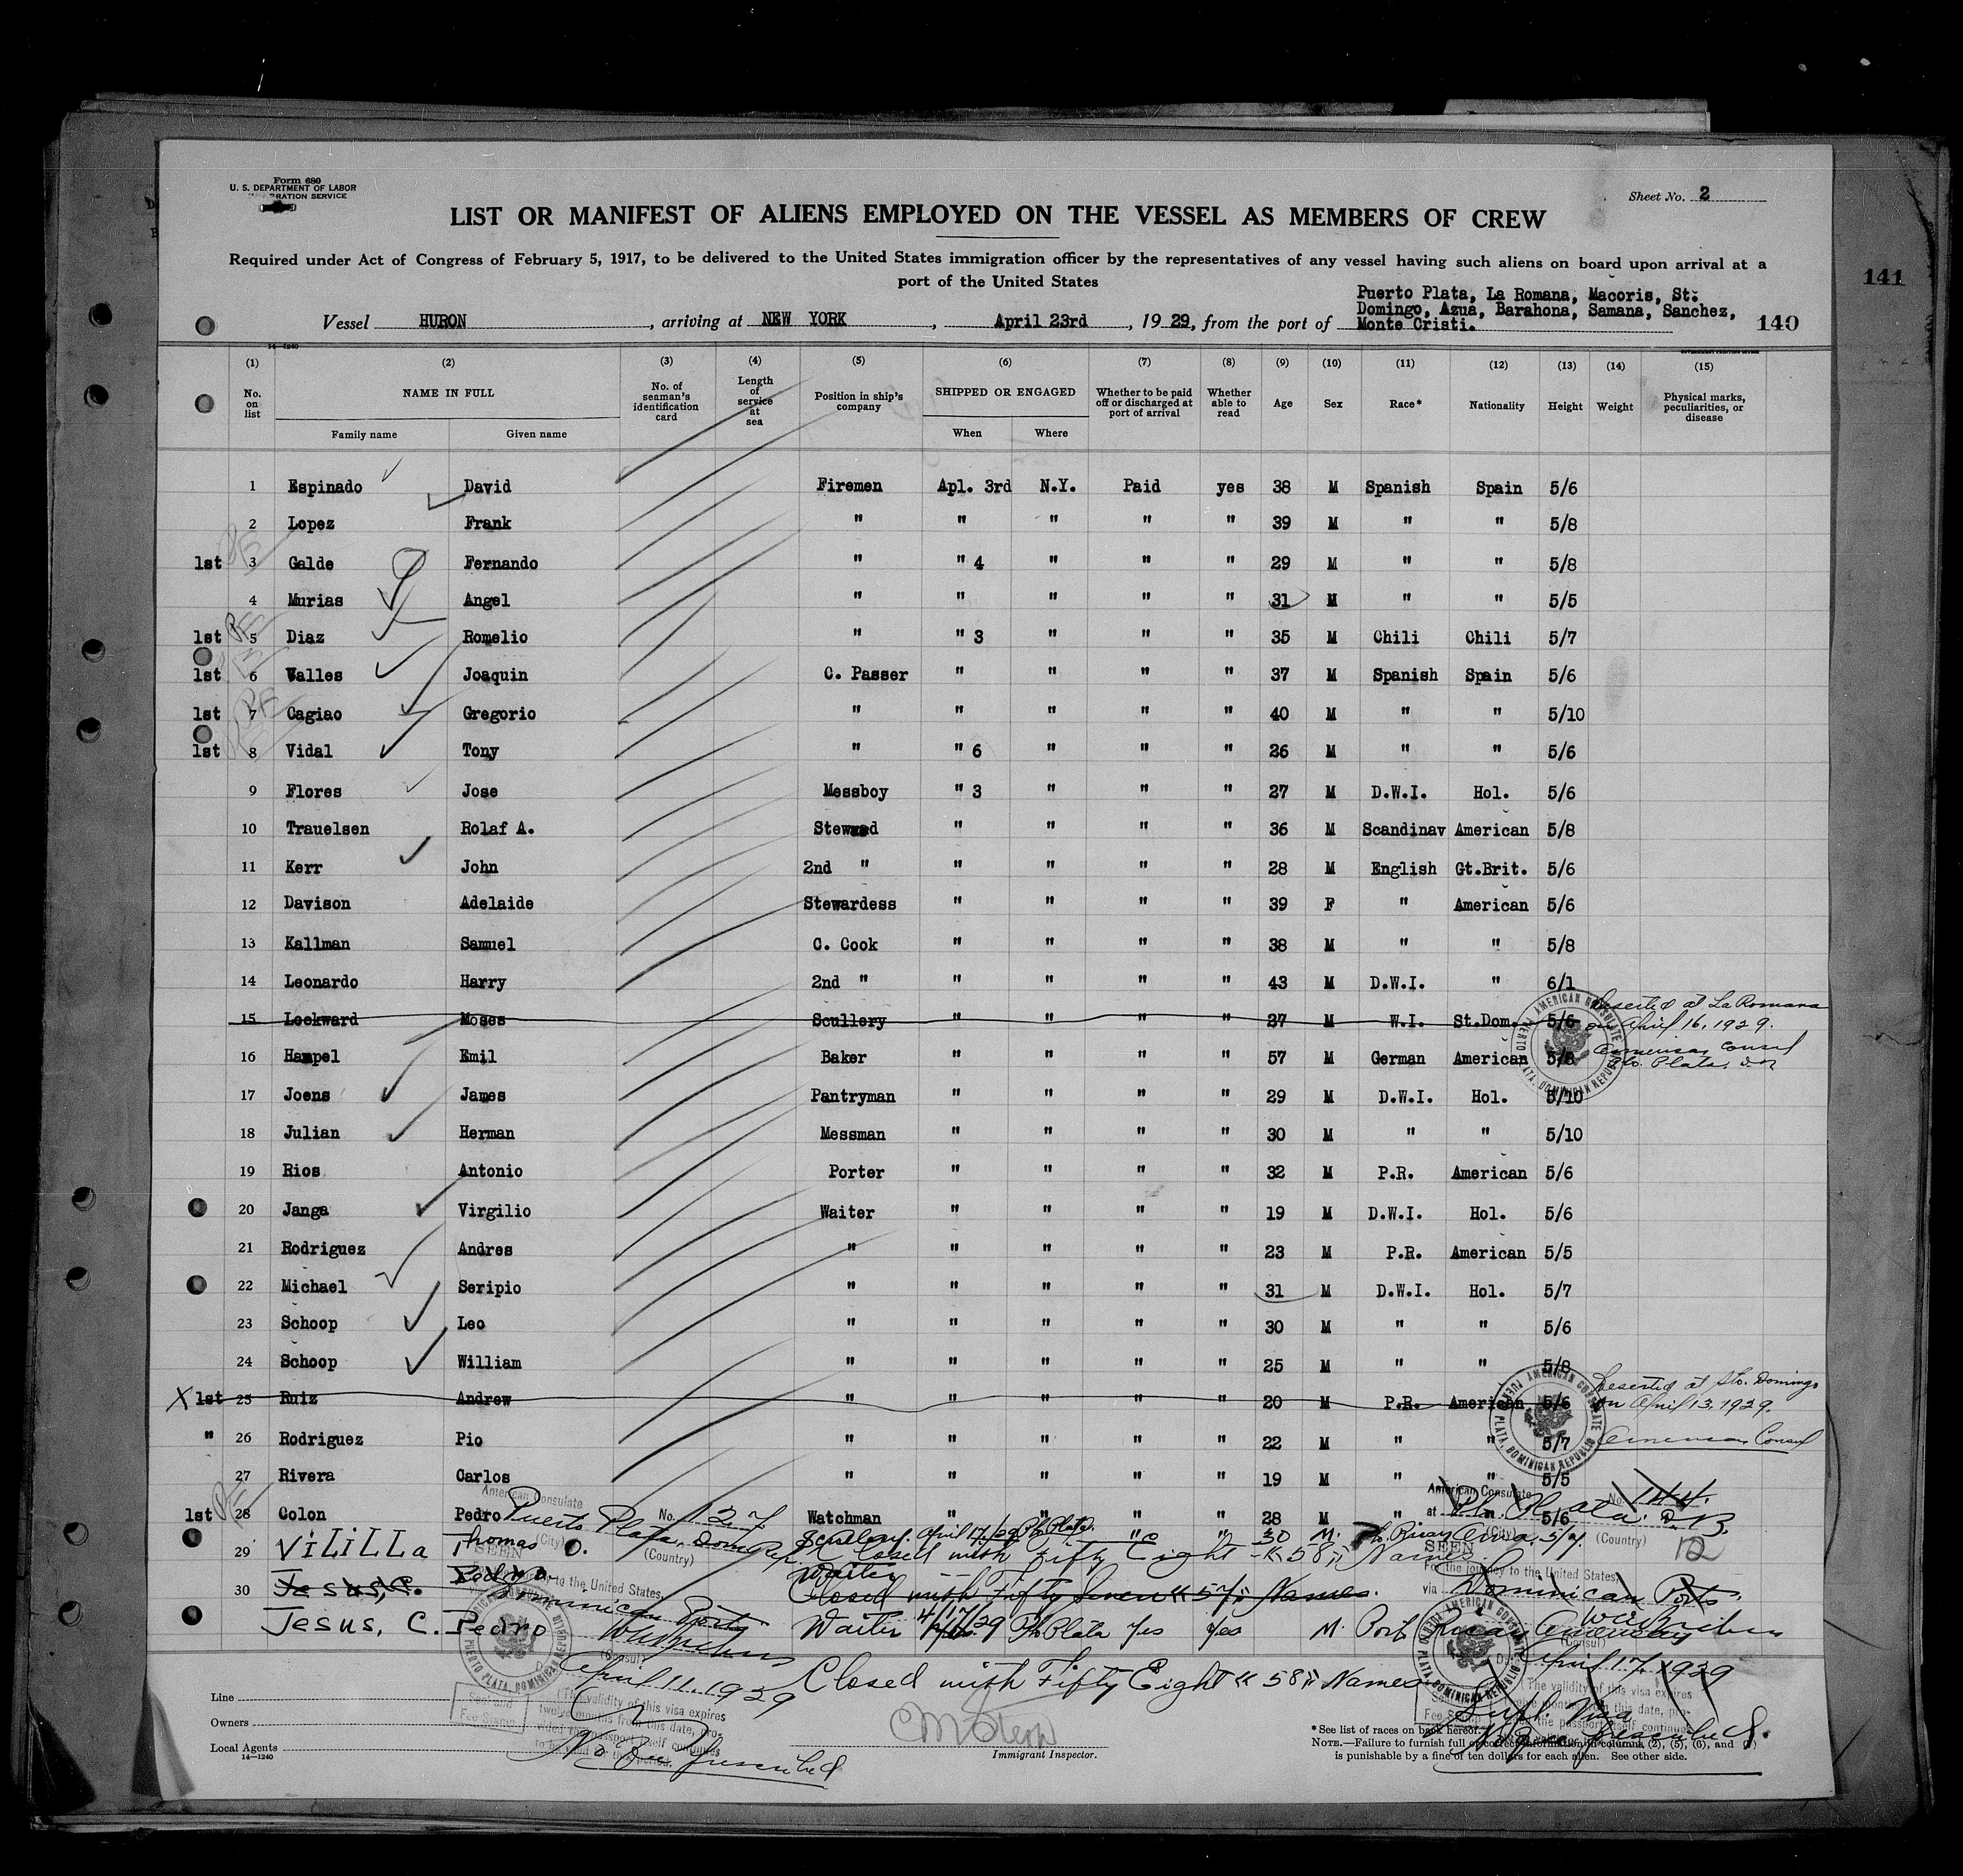 Form 680
U. S. DEPARTMENT OF LABOR
RATION SERVICE
Sheet No. 2
LIST OR MANIFEST OF ALIENS EMPLOYED ON THE VESSEL AS MEMBERS OF CREW
Required under Act of Congress of February 5, 1917, to be delivered to the United States immigration officer by the representatives of any vessel having such aliens on board upon arrival at a
port of the United States
141
Puerto Plata, La Romana, Macoris, St.
Domingo, Azua, Barahona, Samana, Sanchez,
Vessel HURON, arriving at NEW YORK, April 23rd, 1929, from the port of Monte Cristi. 140
14-1240
(1) (2) (3) (4) (5) (6) (7) (8) (9) (10) (11) (12) (13) (14) (15)
No. on list NAME IN FULL No. of seaman's identification card Length of service at sea Position in ship's company SHIPPED OR ENGAGED Whether to be paid off or discharged at port of arrival Whether able to read Age Sex Race* Nationality Height Weight Physical marks, peculiarities, or disease
Family name Given name When Where
1 Espinado David Firemen Apl. 3rd N.Y. Paid yes 38 M Spanish Spain 5/6
2 Lopez Frank " " " " " 39 M " " 5/8
1st 3 Galde Fernando " " 4 " " " 29 M " " 5/8
4 Murias Angel " " " " " 31 M " " 5/5
1st 5 Diaz Romelio " " 3 " " " 35 M Chili Chili 5/7
1st 6 Valles Joaquin C. Passer " " " " 37 M Spanish Spain 5/6
1st 7 Cagiao Gregorio " " " " " 40 M " " 5/10
1st 8 Vidal Tony " " 6 " " " 26 M " " 5/6
9 Flores Jose Messboy " 3 " " " 27 M D.W.I. Hol. 5/6
10 Trauelsen Rolaf A. Steward " " " " 36 M Scandinav American 5/8
11 Kerr John 2nd " " " " " 28 M English Gt.Brit. 5/6
12 Davison Adelaide Stewardess " " " " 39 F " American 5/6
13 Kallman Samuel C. Cook " " " " 38 M " " 5/8
14 Leonardo Harry 2nd " " " " " 43 M D.W.I. " 6/1
15 Lockward Moses Scullery " " " " 37 M W.I. St.Dom. 5/6 Deserted at La Romana
on April 16, 1929.
16 Hampel Emil Baker " " " " 57 M German American 5/8 American Consul
Pto. Plata, D.R
17 Joens James Pantryman " " " " 29 M D.W.I. Hol. 5/10
18 Julian Herman Messman " " " " 30 M " " 5/10
19 Rios Antonio Porter " " " " 32 M P.R. American 5/6
20 Janga Virgilio Waiter " " " " 19 M D.W.I. Hol. 5/6
21 Rodriguez Andres " " " " " 23 M P.R. American 5/5
22 Michael Seripio " " " " " 31 M D.W.I. Hol. 5/7
23 Schoop Leo " " " " " 30 M " " 5/6
24 Schoop William " " " " " 25 M " " 5/8
X 1st 25 Ruiz Andrew " " " " " 20 M P.R. American 5/6 Deserted at Sto. Domingo
on April 13, 1929.
" 26 Rodriguez Pio " " " " " 22 M " " 5/7 American Consul
27 Rivera Carlos " " " " " 19 M " " 5/5
1st 28 Colon Pedro Watchman " " " " 28 M " " 5/6
American Consulate No. 127
Puerto Plata, Dom. Rep.
(City) (Country)
American Consulate No. 144
at Pto. Plata D.R.
(City) (Country)
29 ViLiLLa Thomas O. Scullery. April 17/29 Pto Plata " " 30 M. Po. Rican Amer. 5/7.
Closed with Fifty Eight "58" Names 12
SEEN
SEEN
For the journey to the United States
via Dominican Ports
30 Jesus, C. Pedro Waiter
Closed with Fifty Seven "57" Names.
to the United States
Dominican Ports
Jesus, C. Pedro Waiter 4/17/29 Pto Plata Yes Yes M. Port Rican American
(Consul)
April 11, 1929
Closed with Fifty Eight "58" Names
April 17, 1929
AMERICAN CONSULATE PUERTO PLATA, DOMINICAN REPUBLIC
Seal and
Fee Stamp
(The validity of this visa expires
twelve months from this date, pro-
vided the passport itself continues
to be valid
No Fee Prescribed
(The validity of this visa expires
twelve months from this date, pro-
vided the passport itself continues
Supl. Visa
No Fee Prescribed.
Line
Owners
Local Agents
14-1240
Immigrant Inspector.
*See list of races on back hereof.
NOTE.—Failure to furnish full or correct information in columns (2), (5), (6), and
is punishable by a fine of ten dollars for each alien. See other side.